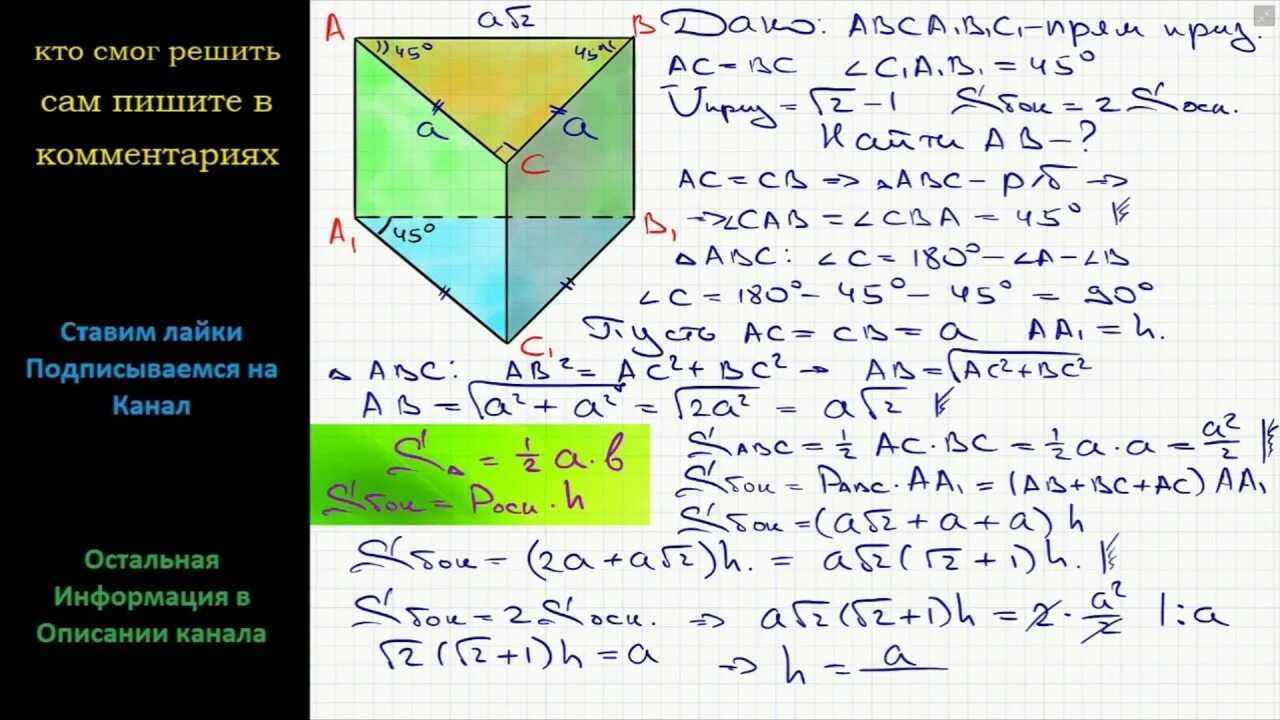 кто смог решить
сам пишите в
комментариях
Ставим лайки
Подписываемся на
Канал
Остальная
Информация в
Описании канала
A a√2 B
))45° 45°
a a
C
A₁ 45° B₁
C₁
Дано: ABCA₁B₁C₁-прям приз.
AC=BC ∠C₁A₁B₁=45°
Vприз=√2-1 Sбок=2Sосн.
Найти AB-?
AC=CB⇒△ABC-р/б⇒
⇒∠CAB=∠CBA=45°
△ABC: ∠C=180°-∠A-∠B
∠C=180°-45°-45°=90°
Пусть AC=CB=a AA₁=h.
△ABC: AB²=AC²+BC²→ AB=√AC²+BC²
AB=√a²+a²=√2a²=a√2
S△=½a·b
Sбок=Pосн·h
SABC=½AC·BC=½a·a=a²/2
Sбок=PABC·AA₁=(AB+BC+AC)AA₁
Sбок=(a√2+a+a)h
Sбок=(2a+a√2)h.=a√2(√2+1)h.
Sбок=2Sосн. ⇒ a√2(√2+1)h=2·a²/2 |:a
√2(√2+1)h=a ⇒ h=a/